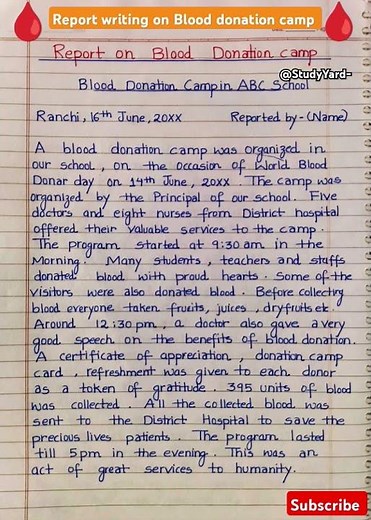 Report writing on Blood donation camp
Report on Blood Donation camp
@StudyYard-
Blood Donation Camp in ABC School
Ranchi, 16th June, 20XX Reported by - (Name)
A blood donation camp was organized in
our school, on the occasion of World Blood
Donar day on 14th June, 20XX. The camp was
organized by the Principal of our school. Five
doctors and eight nurses from District hospital
offered their valuable services to the camp.
The program started at 9:30 am in the
Morning. Many students, teachers and staffs
donated blood with proud hearts. Some of the
visitors were also donated blood. Before collecting
blood everyone taken fruits, juices, dryfruits et.
Around 12:30 pm, a doctor also gave a very
good speech on the benefits of blood donation.
A certificate of appreciation, donation camp
card, refreshment was given to each donor
as a token of gratitude. 395 units of blood
was collected. All the collected blood was
sent to the District Hospital to save the
precious lives patients. The program lasted
till 5 pm in the evening. This was an
act of great services to humanity.
Subscribe